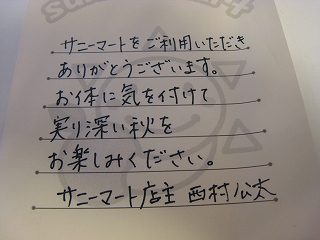 サニーマートをご利用いただき
ありがとうございます。
お体に気を付けて
実り深い秋を
お楽しみください。
サニーマート店主 西村公太